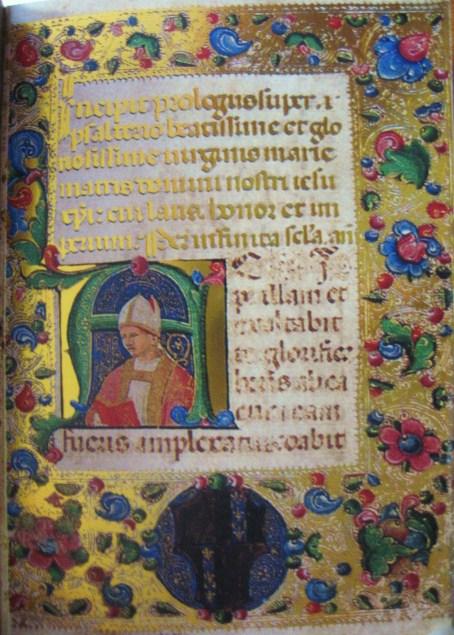 Incipit prologus super
psalterio beatissime et glo
riosissime uirginis marie
matris domini nostri iesu
xp̄i: cui laus. honor et im
perium: Per infinita scl̄a. am̄
A
illam et
exaltabit
te: glorifica
beris ab ea
cum eam
fueris amplexatus. Dabit